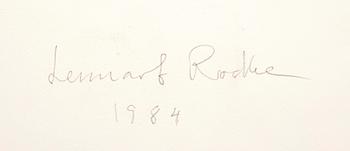 Lennart Rodhe
1984